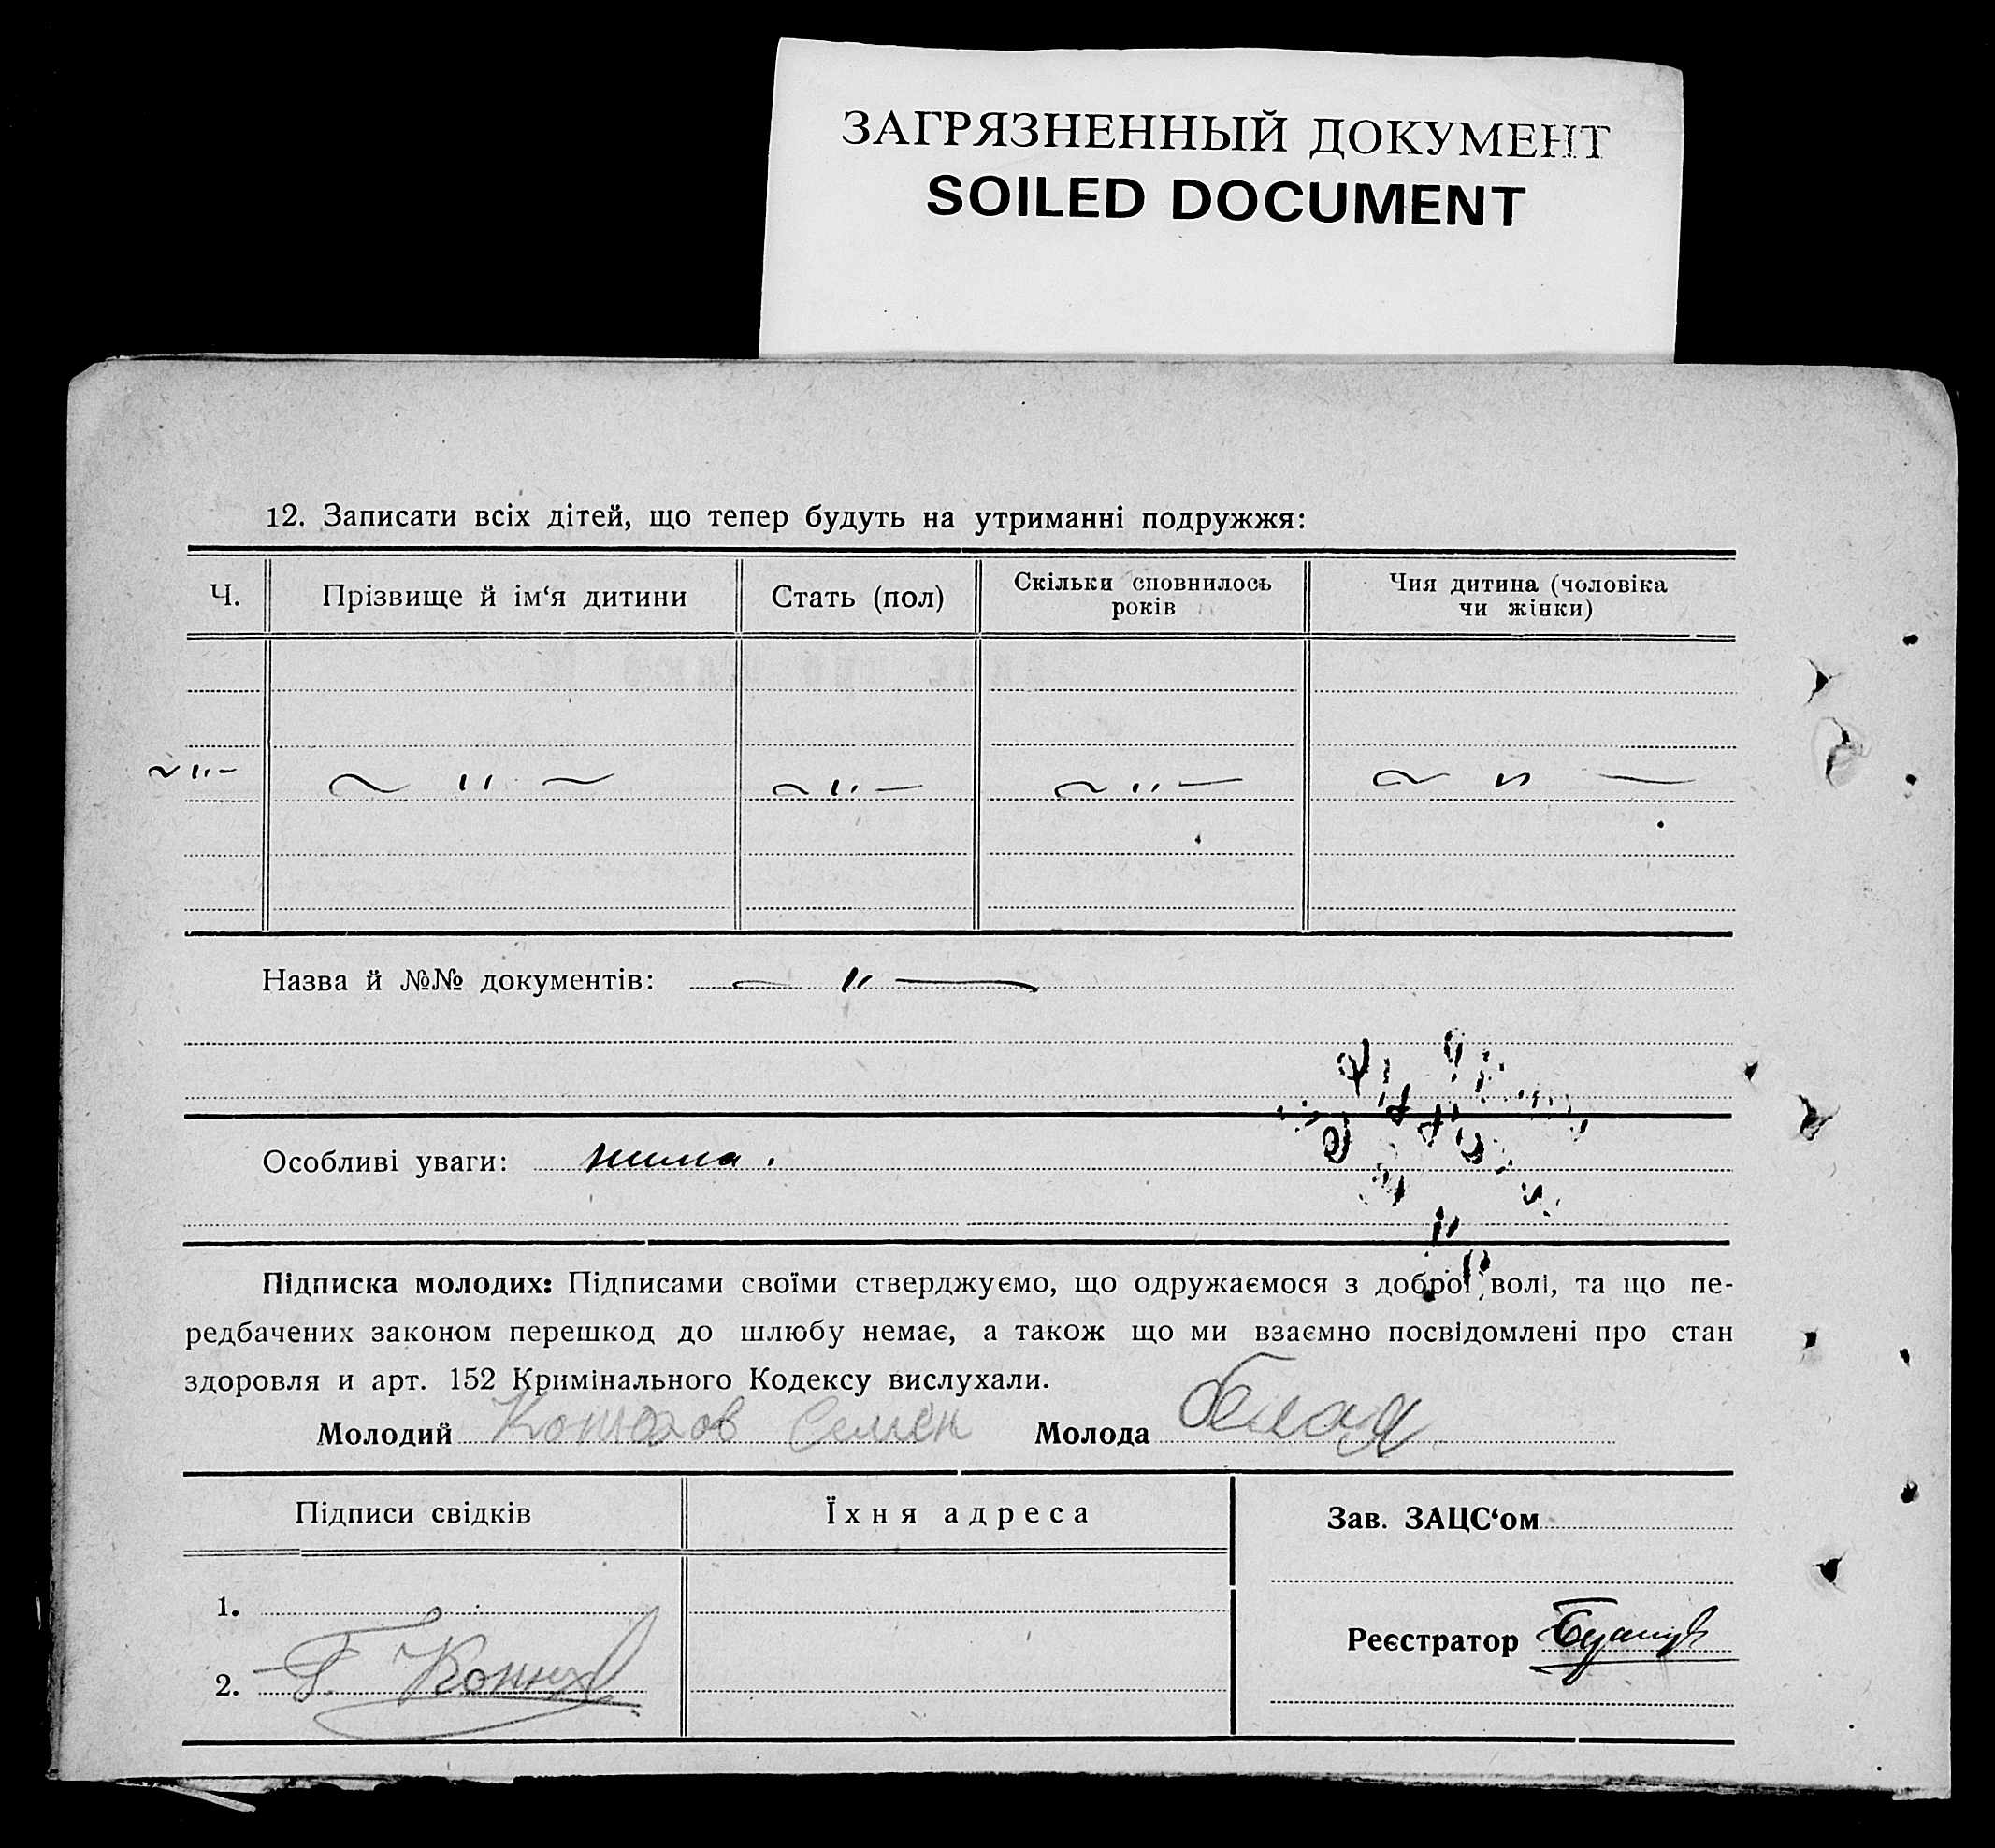 ЗАГРЯЗНЕННЫЙ ДОКУМЕНТ
SOILED DOCUMENT
12. Записати всіх дітей, що тепер будуть на утриманні подружжя:
Ч. Прізвище й ім‘я дитини Стать (пол) Скільки сповнилось років Чия дитина (чоловіка чи жінки)
~ " — ~ " ~ ~ " — ~ " — ~ " —
Назва й №№ документів: — " —
Особливі уваги: нима.
Підписка молодих: Підписами своїми стверджуємо, що одружаємося з доброї волі, та що пе-
редбачених законом перешкод до шлюбу немає, а також що ми взаємно посвідомлені про стан
здоровля и арт. 152 Кримінального Кодексу вислухали.
Молодий Семён Молода белая
Підписи свідків Їхня адреса Зав. ЗАЦС‘ом
1.
Реєстратор
2.